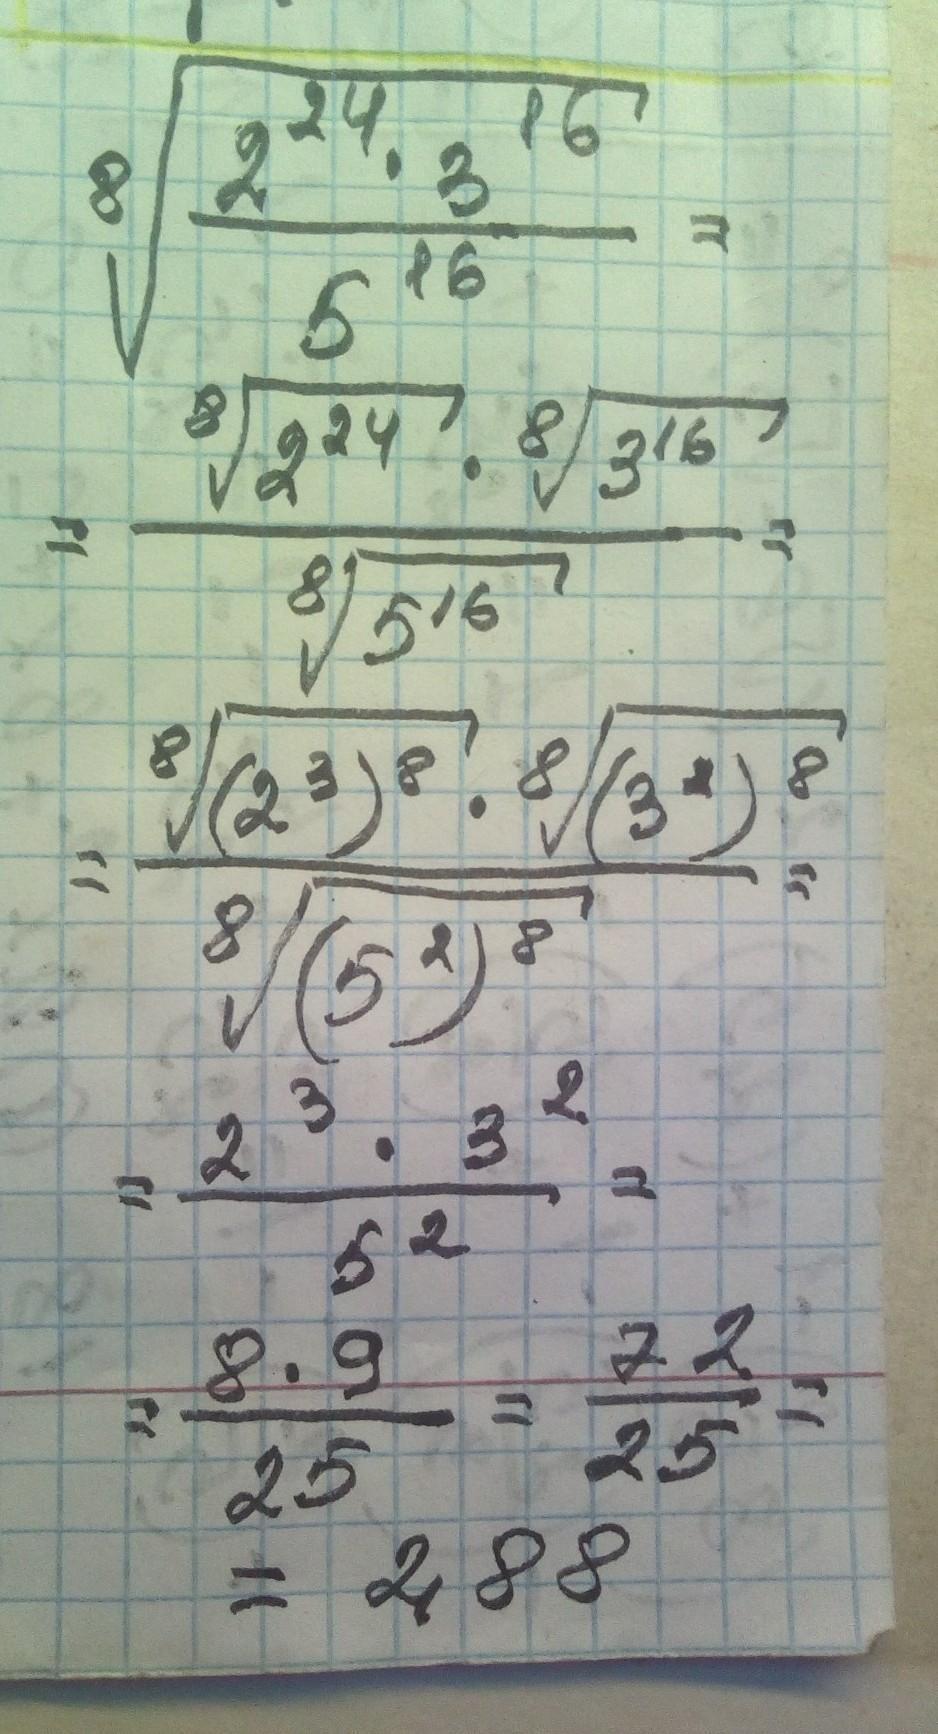 ⁸√(2²⁴ · 3¹⁶ / 5¹⁶) =
= (⁸√2²⁴ · ⁸√3¹⁶) / ⁸√5¹⁶ =
= (⁸√(2³)⁸ · ⁸√(3²)⁸) / ⁸√(5²)⁸ =
= (2³ · 3²) / 5² =
= (8 · 9) / 25 = 72 / 25 =
= 2,88